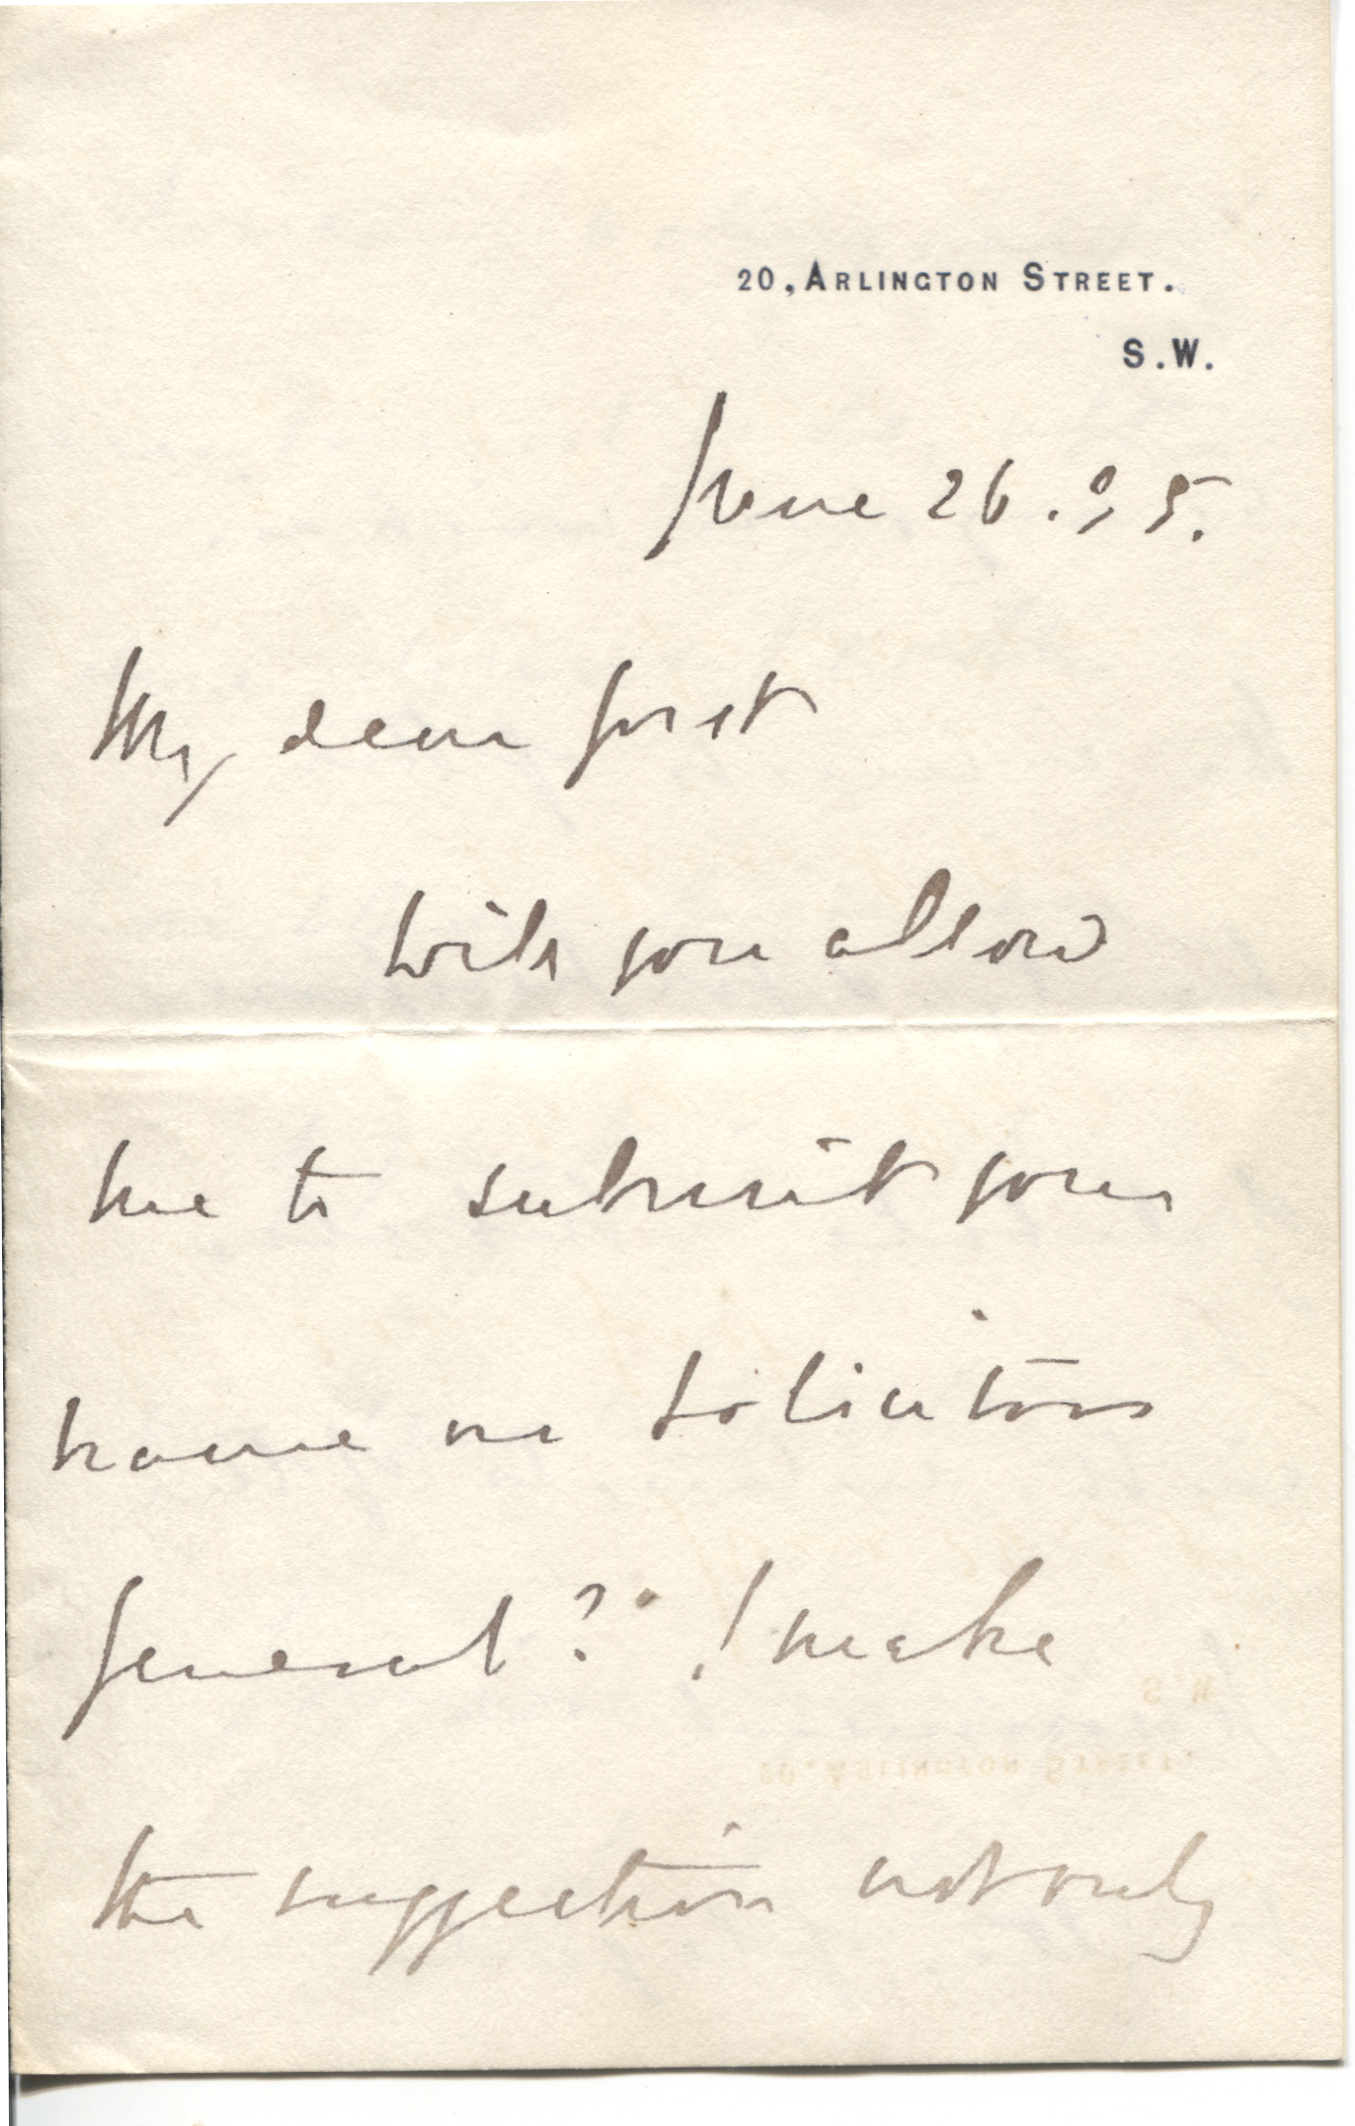 20, ARLINGTON STREET.
S.W.
June 26. 95.
My dear
Will you allow
me to submit your
name as Solicitor
General? I make
the suggestion not only